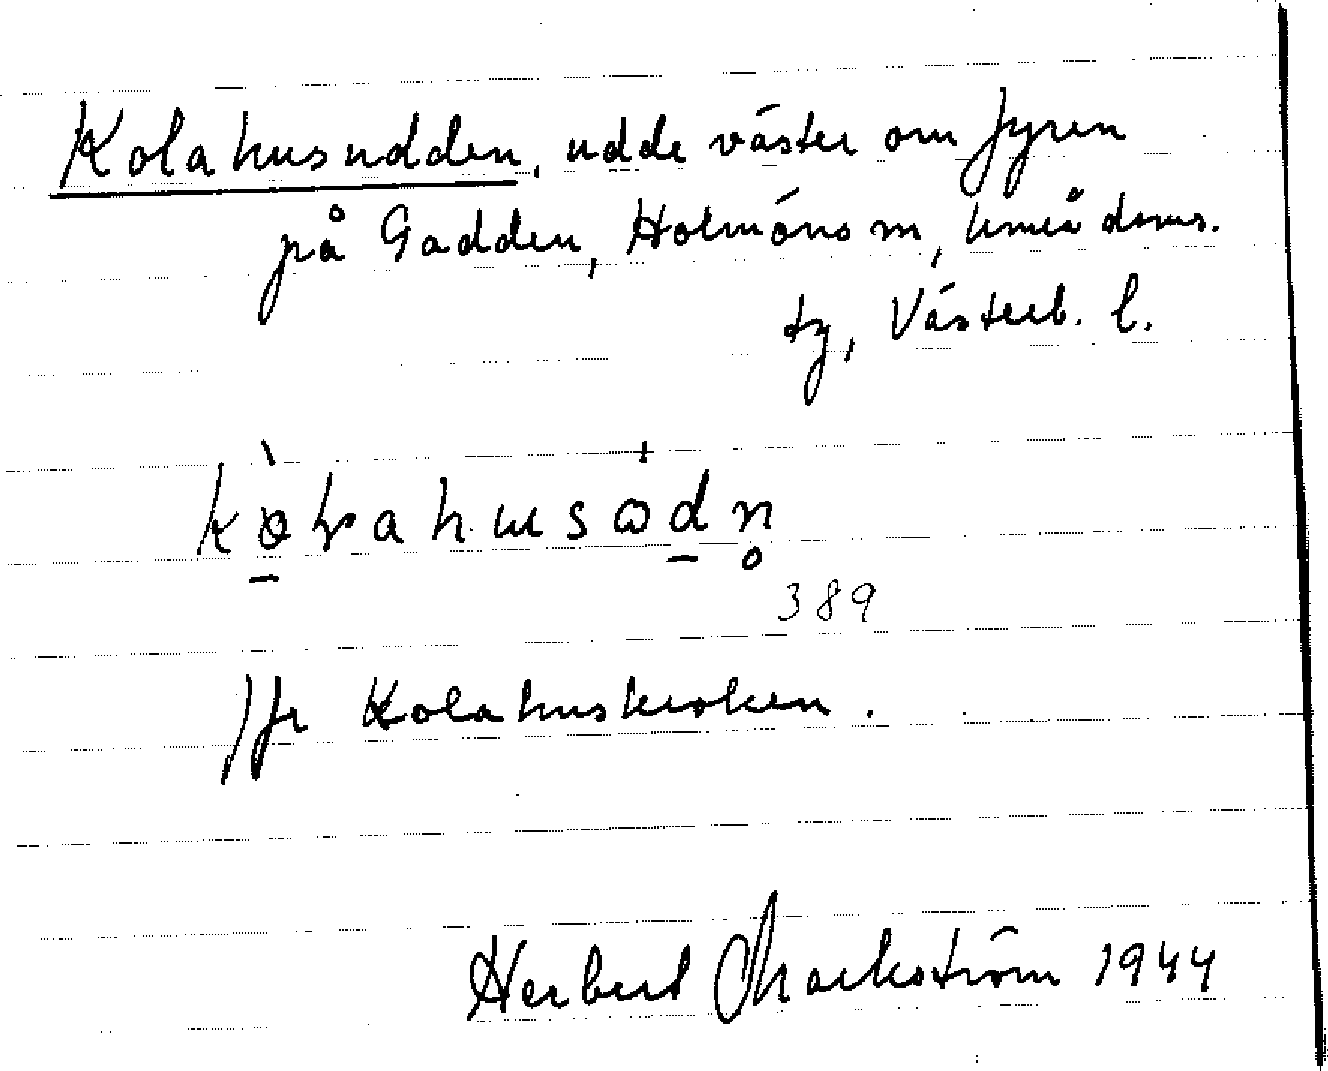 Kolahusudden, udde väster om fyren
på Gadden, Holmöns sn, Umeå doms.
tg, Västerb. l.
389
Jfr Kolahuskroken.
Herbert Markström 1944